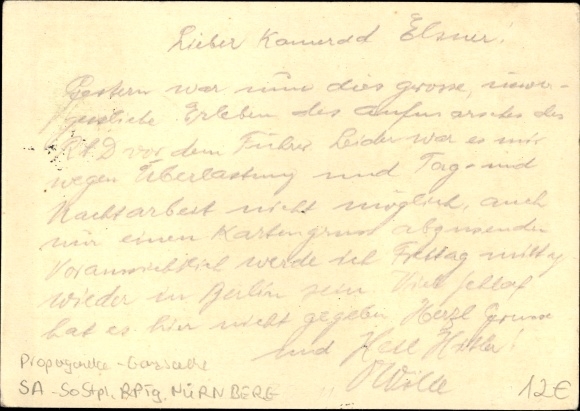 Lieber Kamerad Elsner.
Gestern war nun dies grosse, unver-
gessliche Erleben des Aufmarsches des
R.A.D vor dem Führer. Leider war es mir
wegen Überlastung und Tag- und
Nachtarbeit nicht möglich, auch
nur einen Kartengruss abzusenden
Voraussichtlich werde ich Freitag mittag
wieder in Berlin sein. Viel Schlaf
hat es hier nicht gegeben Herzl Grüsse
und Heil Hitler!
Propaganda-Ganzsache
SA-SoStpl. RPTg. NÜRNBERG
12€